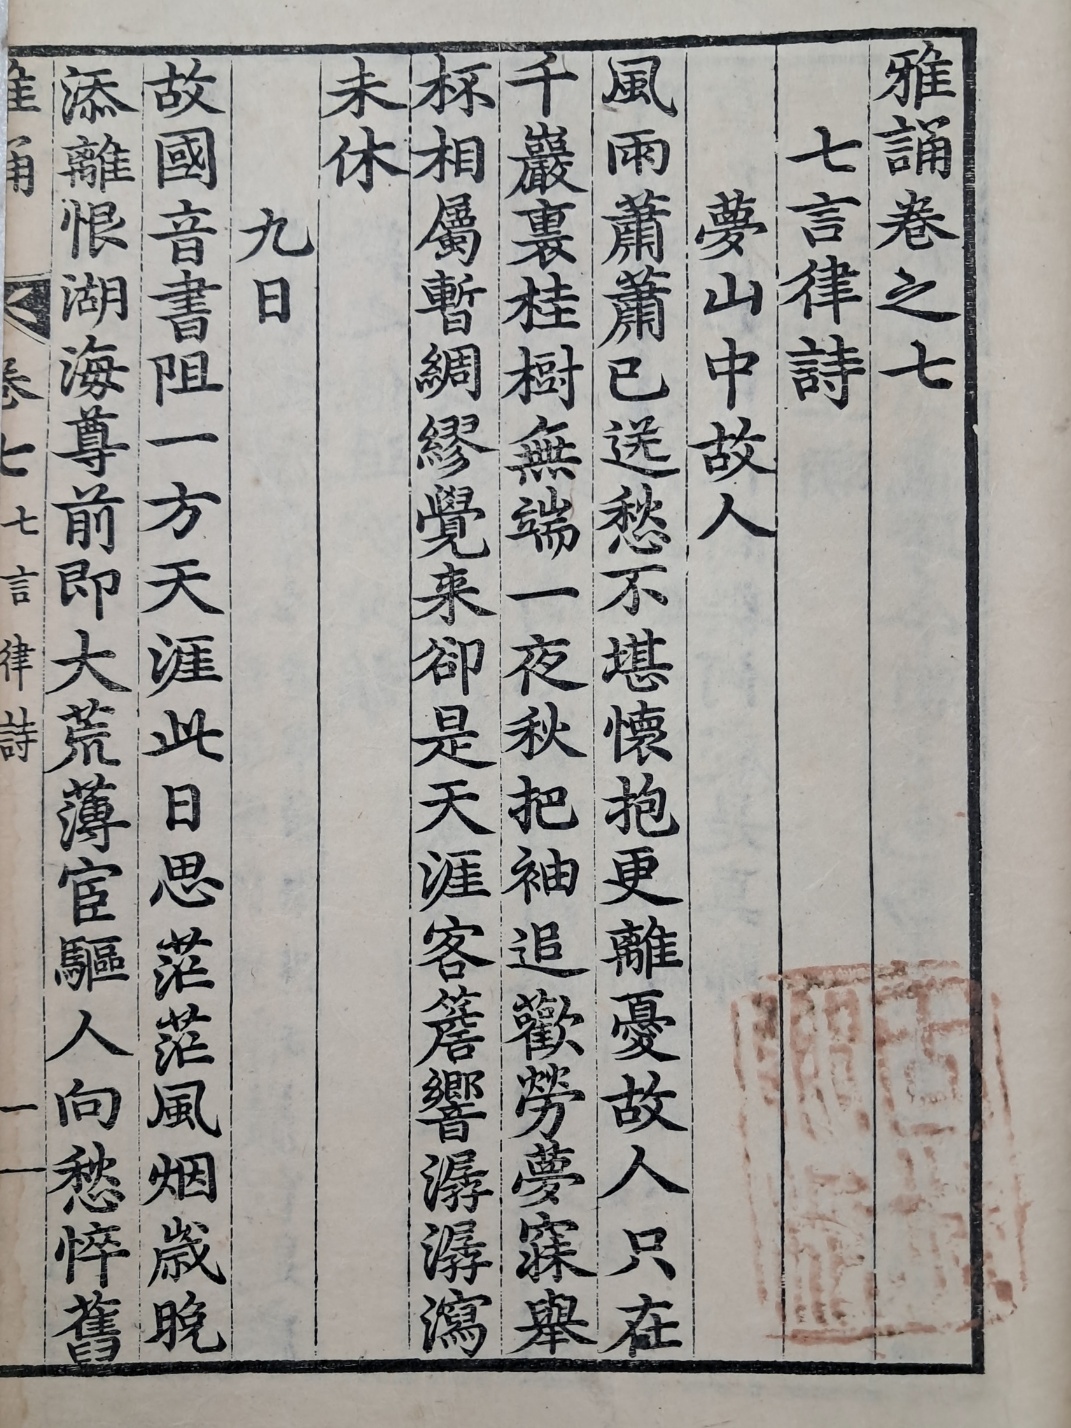 雅誦卷之七
七言律詩
夢山中故人
風雨蕭蕭已送愁不堪懷抱更離憂故人只在
千巖裏桂樹無端一夜秋把袖追歡勞夢寐舉
杯相屬暫綢繆覺来卻是天涯客簷響潺潺瀉
未休
九日
故國音書阻一方天涯此日思茫茫風烟歳晚
添離恨湖海尊前即大荒薄宦驅人向愁悴舊
雅誦 卷七 七言律詩 一